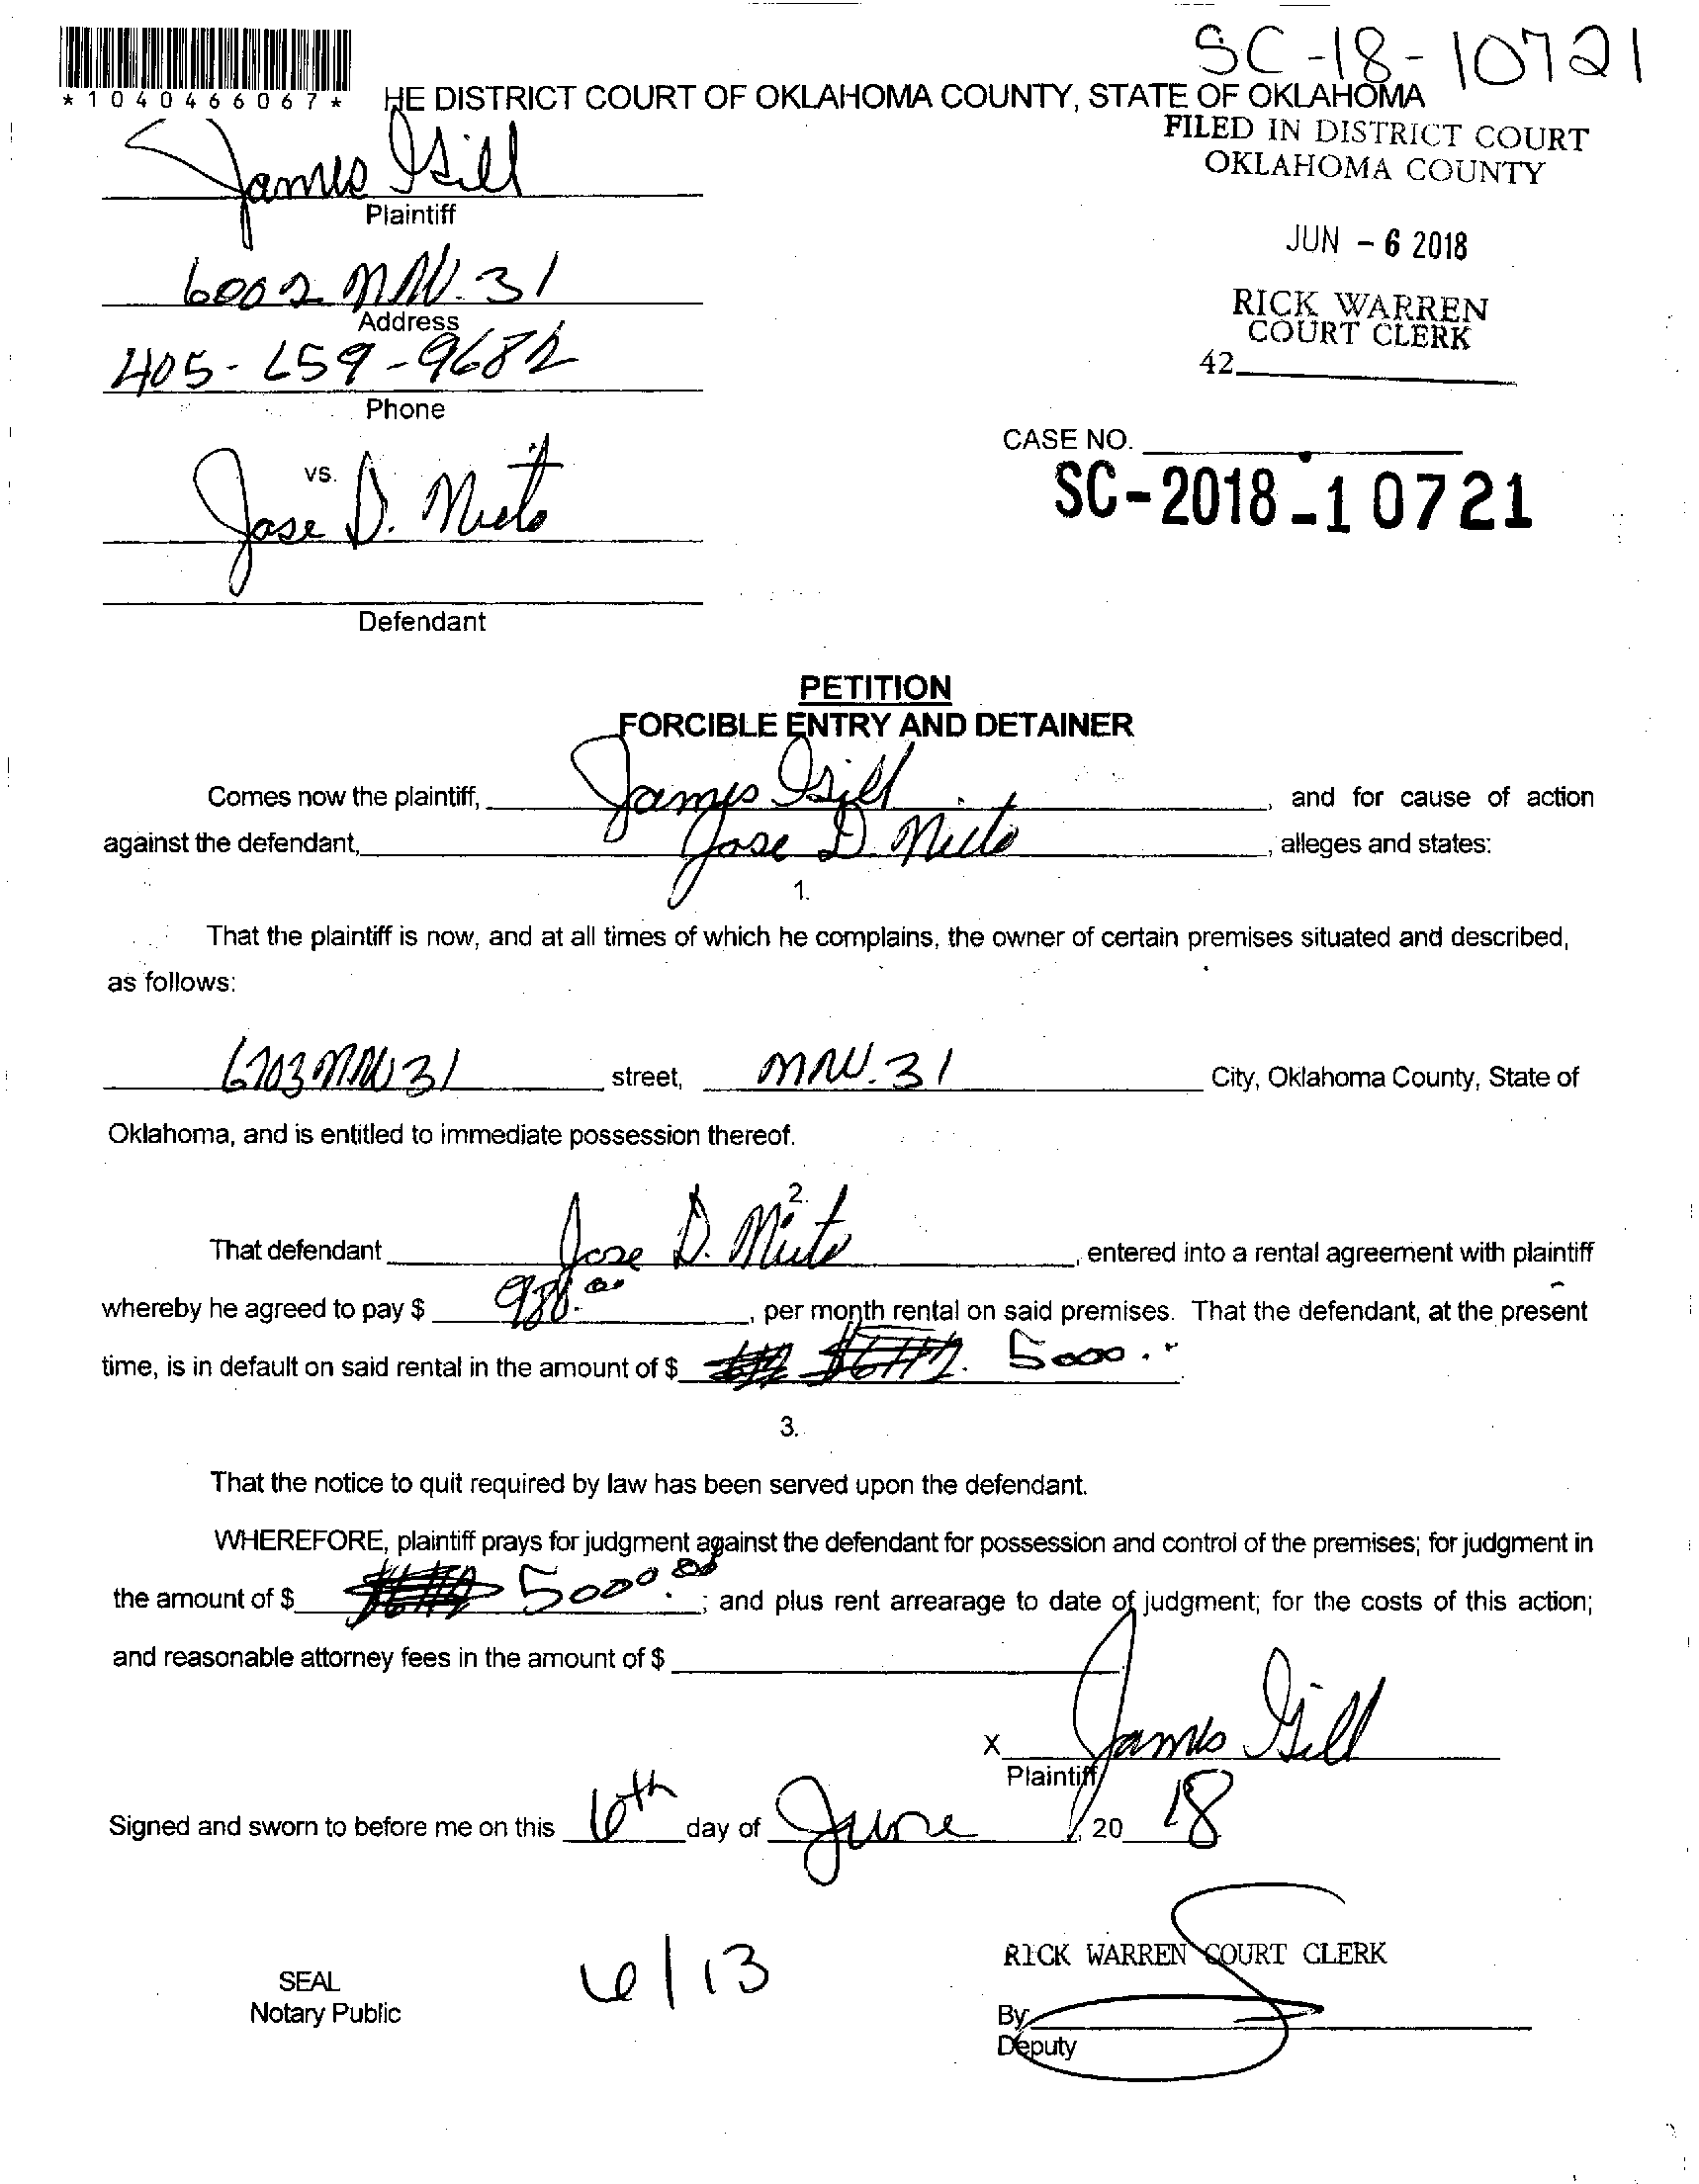 SC-18-10721
*1040466067*
HE DISTRICT COURT OF OKLAHOMA COUNTY, STATE OF OKLAHOMA
FILED IN DISTRICT COURT
OKLAHOMA COUNTY
James Gill
Plaintiff
JUN - 6 2018
6002 NW. 31
Address
RICK WARREN
COURT CLERK
42
405- 659-9682
Phone
CASE NO.
SC-2018-10721
vs.
Jose D. Nieto
Defendant
PETITION
FORCIBLE ENTRY AND DETAINER
Comes now the plaintiff, James Gill, and for cause of action
against the defendant, Jose D. Nieto, alleges and states:
1.
That the plaintiff is now, and at all times of which he complains, the owner of certain premises situated and described,
as follows:
6703 NW 31 street, NW. 31 City, Oklahoma County, State of
Oklahoma, and is entitled to immediate possession thereof.
2.
That defendant Jose D. Nieto, entered into a rental agreement with plaintiff
whereby he agreed to pay $, per month rental on said premises. That the defendant, at the present
time, is in default on said rental in the amount of $ 5000.
3.
That the notice to quit required by law has been served upon the defendant.
WHEREFORE, plaintiff prays for judgment against the defendant for possession and control of the premises; for judgment in
the amount of $ 5000.00; and plus rent arrearage to date of judgment; for the costs of this action;
and reasonable attorney fees in the amount of $
X James Gill
Plaintiff
Signed and sworn to before me on this 6th day of June, 20 18
RICK WARREN COURT CLERK
SEAL
Notary Public
6/13
By
Deputy